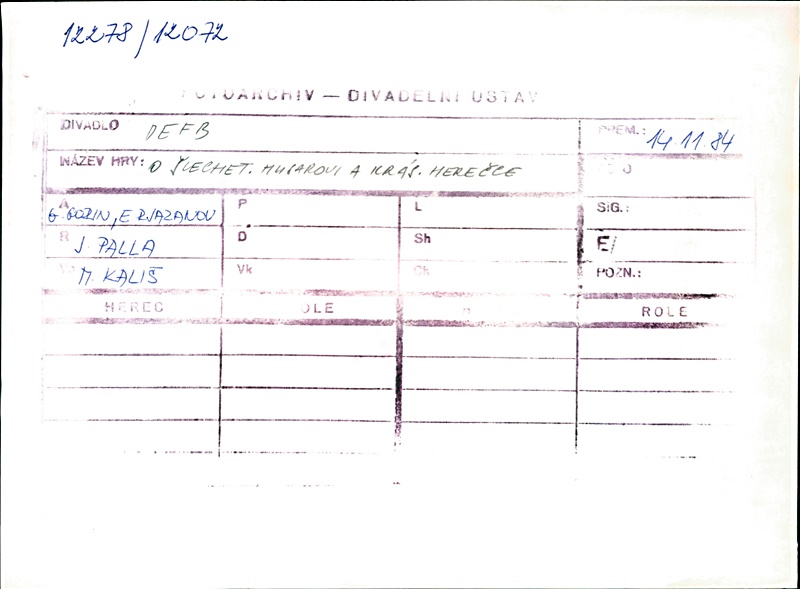 12278/12072
FOTOARCHIV — DIVADELNÍ ÚSTAV
DIVADLO DEFB PREM.: 14.11.84
NÁZEV HRY: O ŠLECHET. HUSAROVI A KRÁS. HEREČCE
A G. GORIN, E RJAZANOV P L SIG.:
R J. PALLA D Sh E/
M. KALIŠ Vk Ch POZN.:
HEREC ROLE ROLE